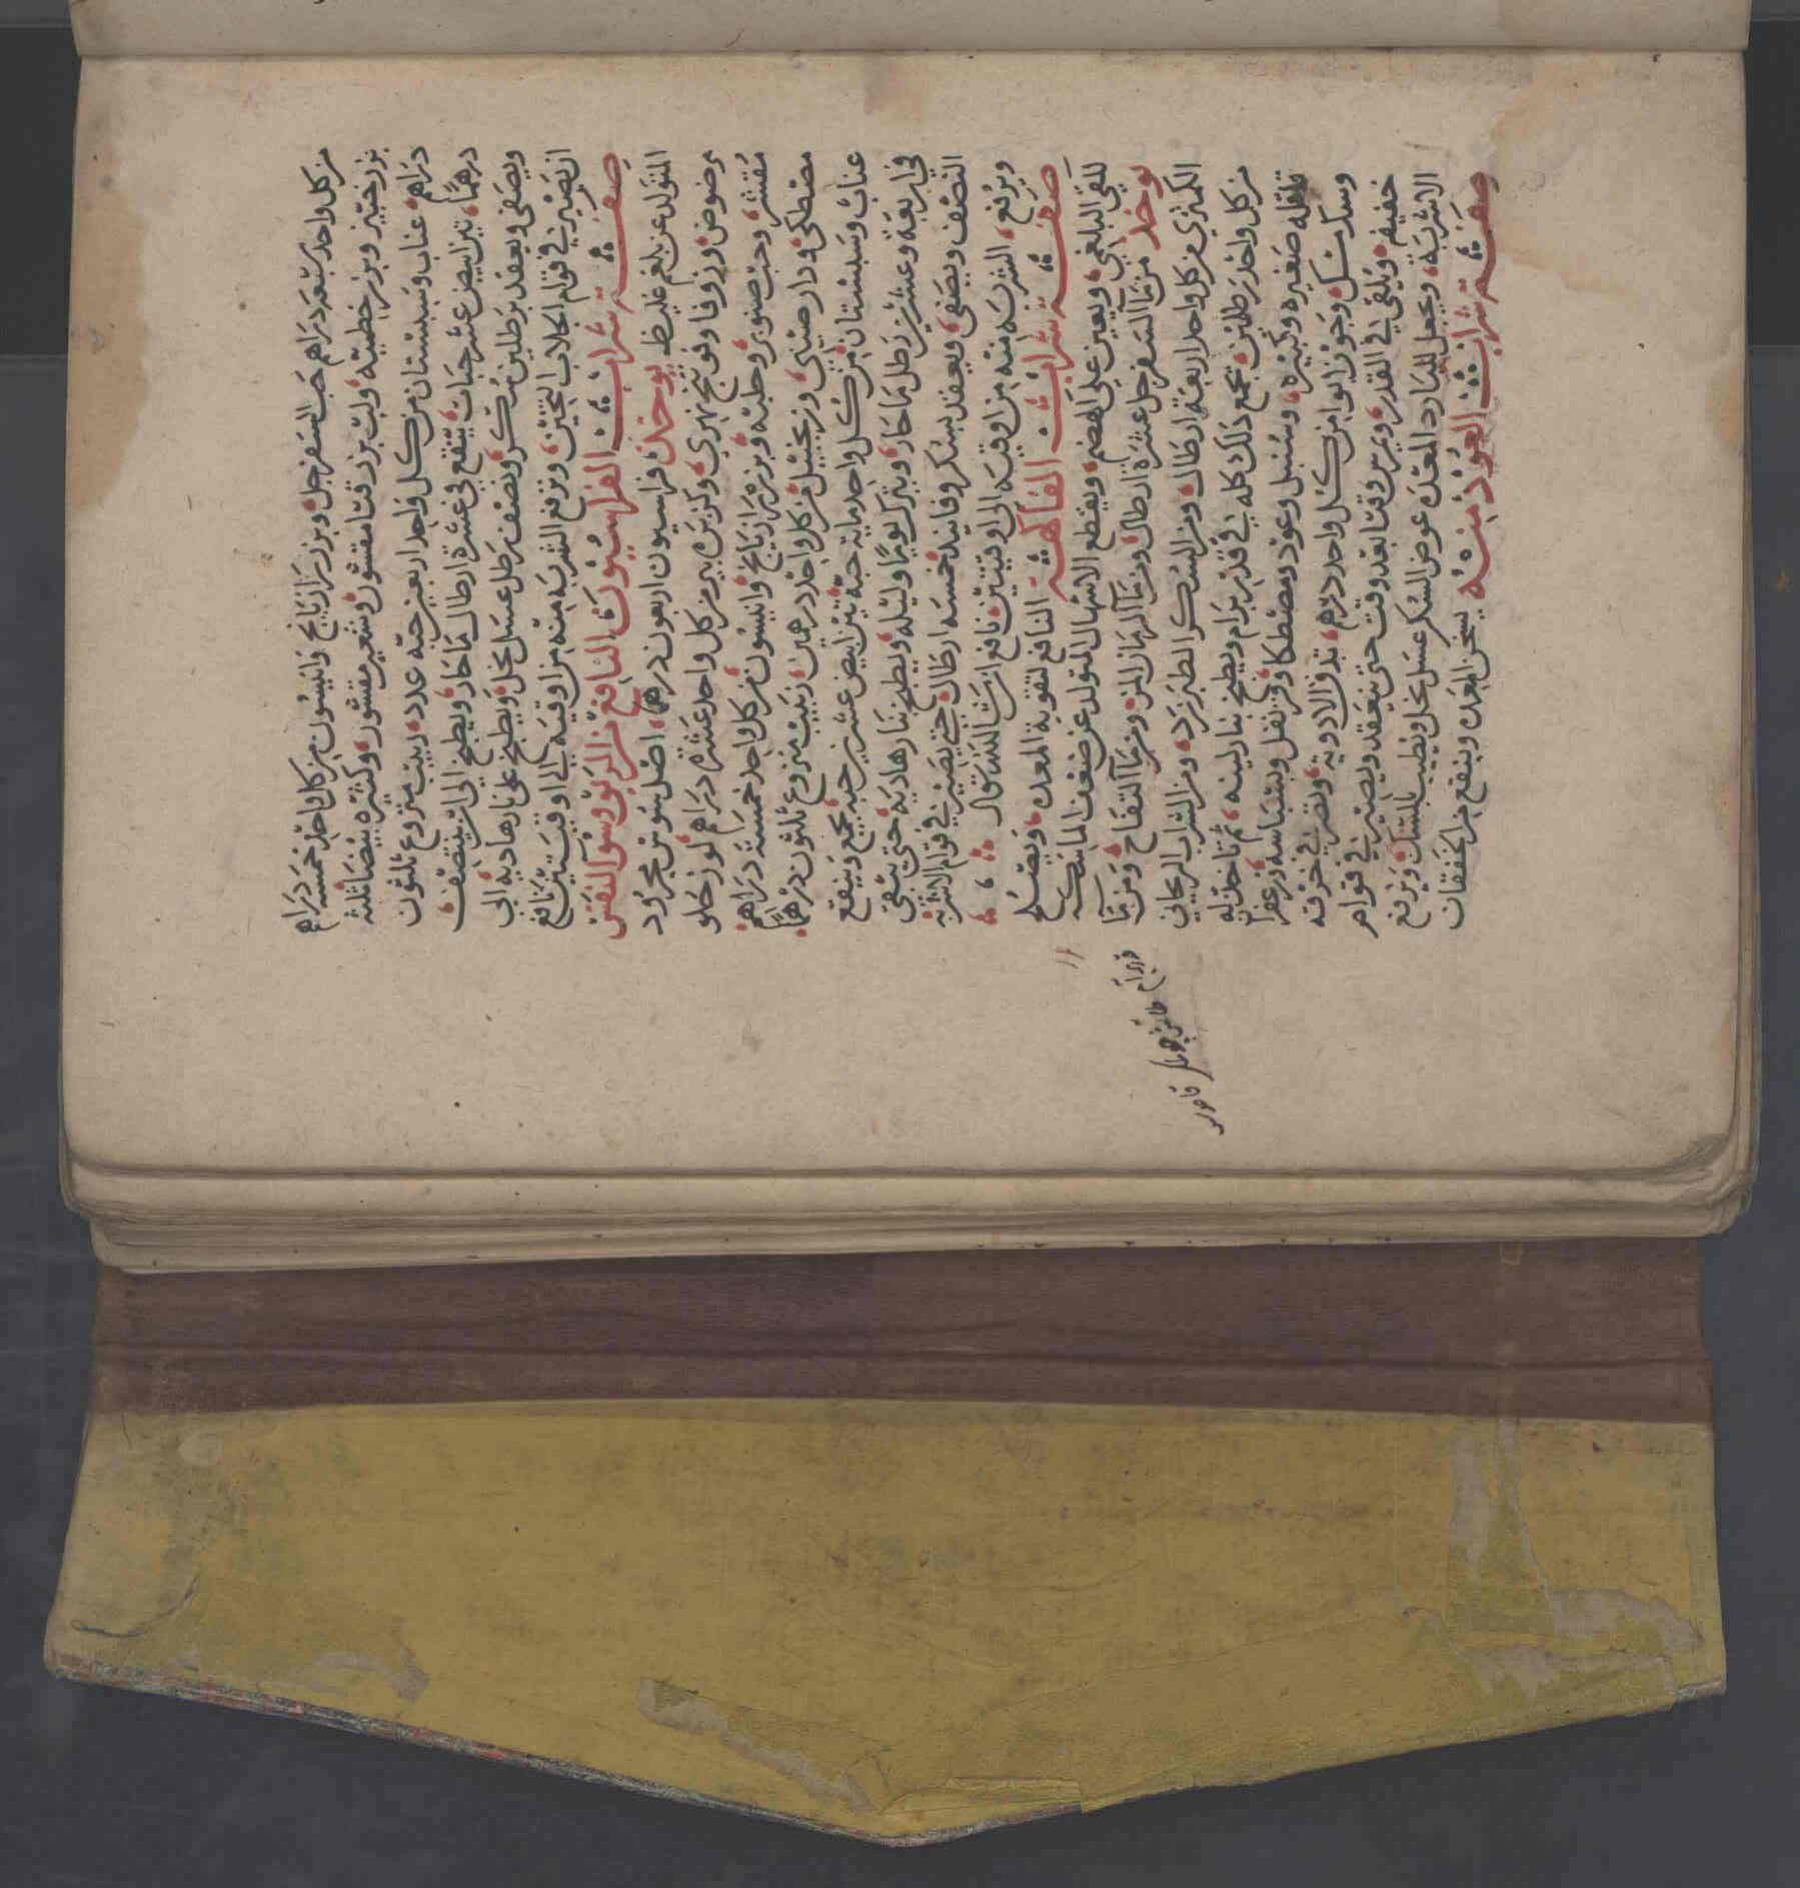 من كل واحد سبعة دراهم حب السفرجل وبزر رازيانج وانيسون من كل واحد خمسة دراهم
بزر خبيز وبزر خطميه ولب بزر قثا مقشور وشعير مقشور وكثيره بيضا ثلثة
دراهم عناب وسبستان من كل واحد اربعين حبه عدد زبيب منزوع ثلثون
درهما تين ابيض عشر حبات ينقع في عشرة ارطال ما حار ويطبخ الى ان ينتصف
ويصفى ويعقد برطلين سكر ونصف رطل عسل نحل ويطبخ على نار هاديه الى
ان يصير في قوام الجلاب الثخين ويرفع الشربه منه من اوقيه الى اوقيتين نافع
صفة شراب الفراسيون النافع من الربو وسو النفس
المتولد عن بلغم غليظ يوخذ فراسيون اربعون درهما اصل سوس مجرود
مرضوض وزوفا وفوتنج نهري وكزبرة بير من كل واحد عشرة دراهم لوز حلو
مقشر وحب صنوبر وحلبه وبزر رازيانج وانيسون من كل واحد خمسة دراهم
مصطكى ودار صيني وزنجبيل من كل واحد درهمين زبيب منزوع ثلثون درهما
عناب وسبستان من كل واحد مايه حبة تين ابيض عشرين حبه يجمع وينقع
في اربعة وعشرين رطل ما حار ويترك يوما وليله ويطبخ بنار هاديه حتى يبقى
النصف ويصفى ويعقد بسكر وفانيد خمسه ارطال حتى يصير في قوام الاشربه
ويرفع الشربه منه من اوقيه الى اوقيتين نافع ان شا الله تعالى
صفة شراب الفاكهة النافع لتقوية المعده ويصلح
للقي البلغمي ويعين على الهضم ويقطع الاسهال المتولد عن ضعف الماسكه
يوخذ من ما السفرجل عشرة ارطال ومن ما الرمان المز ومن ما التفاح ومن ما
الكمثرى من كل واحد اربعة ارطال ومن السكر الطبرزد ومن الشراب الريحاني
من كل واحد رطلين يجمع ذلك كله في قدر برام ويطبخ بنار لينه ثم تاخذ له
قاقله صغيره وكبيره وسنبل وعود ومصطكا وقرنفل وبسباسه زعفران
وسك مسك وجوزبوا من كل واحد درهم تدق الادويه وتصر في خرقه
خفيفه وتلقى في القدر وتمرس وقتا بعد وقت حتى ينعقد ويصير في قوام
الاشربة ويجعل للبارد المعده عوض السكر عسل نحل ويطيب بالمسك ويرفع
صفة شراب العود منه يسخن المعده وينفع من الخفقان